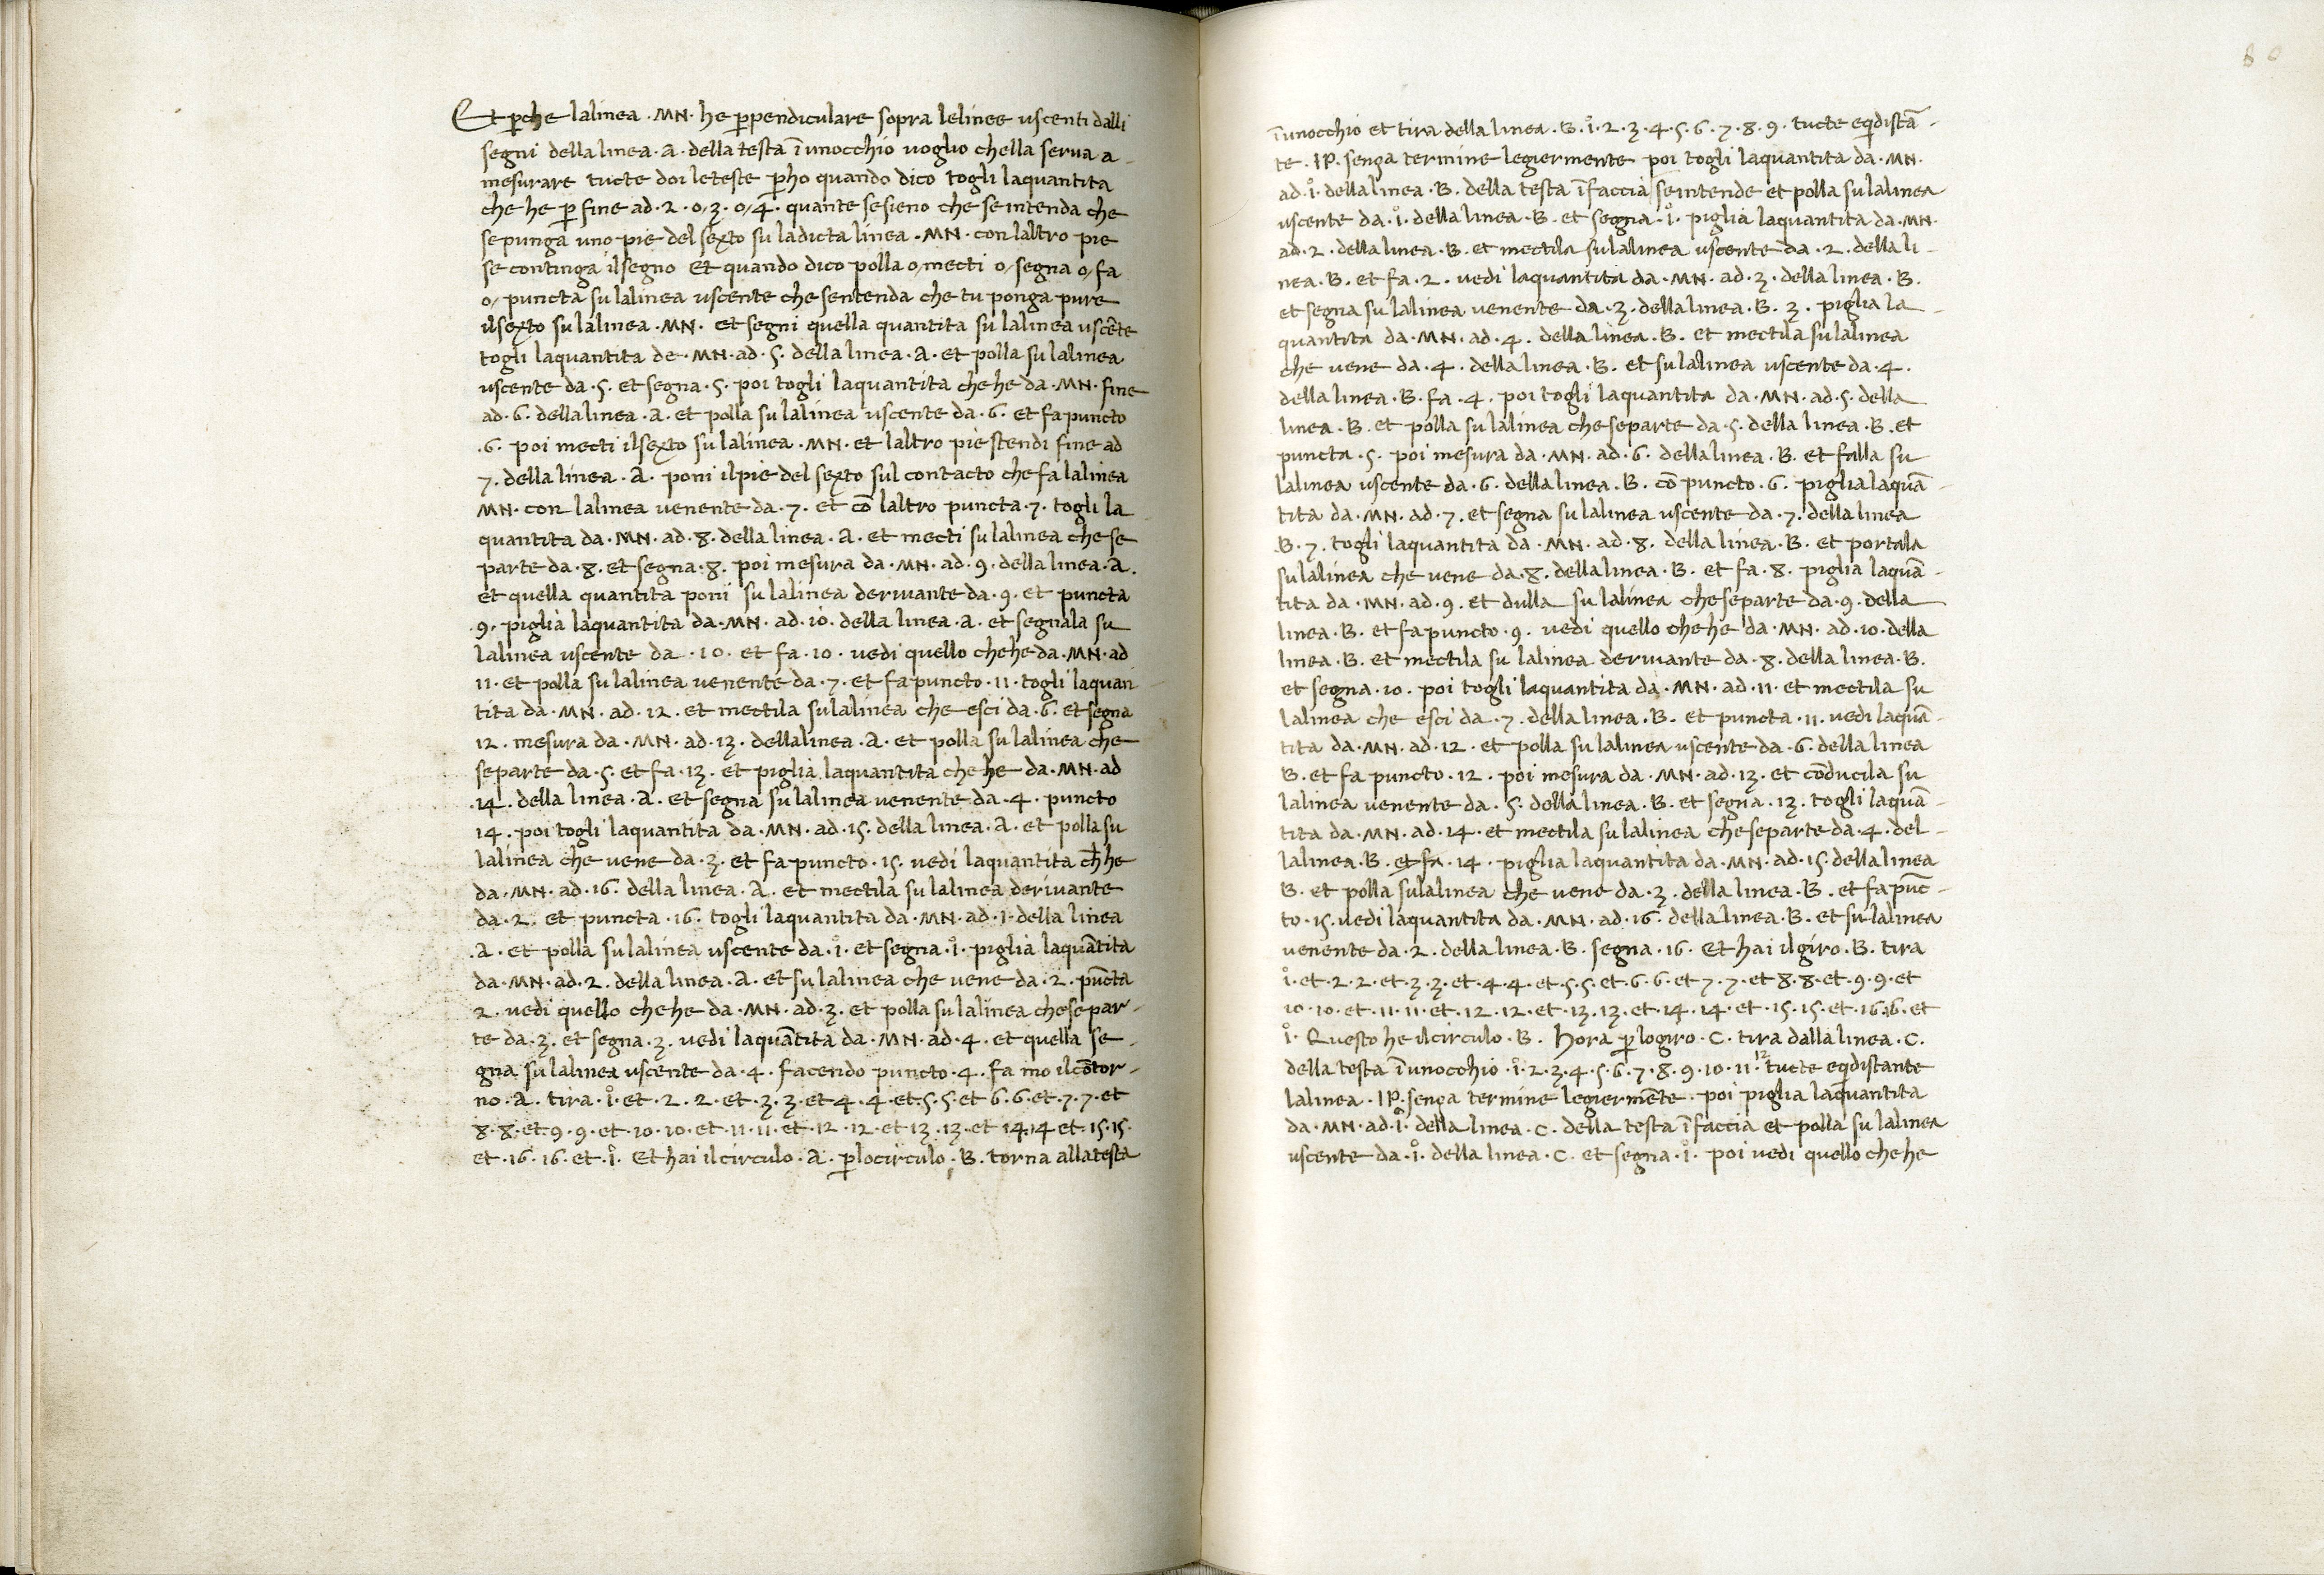 Et p̱che lalinea .MN. he p̱pendiculare sopra lelinee uscenti dalli
segni dellalinea .A. della testa ī unocchio uoglio chella serua a-
mesurare tucte doi leteste p̱ho quando dico togli laquantita
che he p̱ fine ad .2. o/ 3. o/ 4. quante sesieno che seintenda che
sepunga uno pie del sexto su ladicta linea .MN. con laltro pie
se continga ilsegno Et quando dico polla o/ mecti o/ segna o/ fa
o/ puncta su lalinea uscente che sentenda che tu ponga pure
ilsexto su lalinea .MN. et segni quella quantita su lalinea uscēte
togli laquantita de .MN. ad .5. della linea .A. et polla su lalinea
uscente da .5. et segna .5. poi togli laquantita che he da .MN. fine
ad .6. dellalinea .A. et polla su lalinea uscente da .6. et fa puncto
.6. poi mecti ilsexto su lalinea .MN. et laltro pie stendi fine ad
7. della linea .A. poni ilpie del sexto sul contacto che fa lalinea
MN. con lalinea venente da .7. et cō laltro puncta .7. togli la
quantita da .MN. ad .8. della linea .A. et mecti su lalinea che se
parte da .8. et segna .8. poi mesura da .MN. ad .9. della linea .A.
et quella quantita poni su lalinea deriuante da .9. et puncta
.9. piglia laquantita da .MN. ad .10. della linea .A. et segnala su
lalinea uscente da .10. et fa .10. vedi quello che he da .MN. ad
11. et polla su lalinea venente da .7. et fa puncto .11. togli laquan-
tita da .MN. ad .12. et mectila su lalinea che esci da .6. et segna
12. mesura da .MN. ad .13. dellalinea .A. et polla su lalinea che
separte da .5. et fa .13. et piglia laquantita che he da .MN. ad
.14. della linea .A. et segna su lalinea venente da .4. puncto
14. poi togli laquantita da .MN. ad .15. della linea .A. et polla su
lalinea che vene da .3. et fa puncto .15. vedi laquantita ch̄ he
da .MN. ad .16. della linea .A. et mectila su lalinea deriuante
da .2. et puncta .16. togli laquantita da .MN. ad .1. della linea
.A. et polla su lalinea uscente da .i̊. et segna .i̊. piglia laquātita
da .MN. ad .2. della linea .A. et su lalinea che vene da .2. pūcta
2. vedi quello che he da .MN. ad .3. et polla su lalinea che separ-
te da .3. et segna .3. vedi laquātita da .MN. ad .4. et quella se-
gna su lalinea uscente da .4. facendo puncto .4. fa mo il cōtor-
no .A. tira .i̊. et .2. 2. et .3. 3. et 4. 4. et .5. 5. et 6. 6. et .7. 7. et
8. 8. et .9. 9. et .10. 10. et .11. 11. et .12. 12. et 13. 13. et 14. 14 et .15. 15.
et .16. 16. et .i̊. Et hai il circulo .A. p̱ locirculo .B. torna alla testa
ī unocchio et tira della linea .B. i̊. 2. 3. 4. 5. 6. 7. 8. 9. tucte eqdistā-
te .IP. senza termine legiermente poi togli laquantita da .MN.
ad .i̊. dellalinea .B. della testa ī faccia seintende et polla su lalinea
uscente da .i̊. della linea .B. et segna .i̊. piglia laquantita da .MN.
ad .2. della linea .B. et mectila su lalinea uscente da .2. della li-
nea .B. et fa .2. vedi laquantita da .MN. ad .3. della linea .B.
et segna su lalinea venente da .3. della linea .B. 3. piglia la-
quantita da .MN. ad .4. della linea .B. et mectila su lalinea
che vene da .4. della linea .B. et su lalinea uscente da .4.
della linea .B. fa .4. poi togli laquantita da .MN. ad .5. della
linea .B. et polla su lalinea che separte da .5. della linea .B. et
puncta .5. poi mesura da .MN. ad .6. della linea .B. et falla su
lalinea uscente da .6. della linea .B. cō puncto .6. piglia laquā-
tita da .MN. ad .7. et segna su lalinea uscente da .7. della linea
.B. 7. togli laquantita da .MN. ad .8. della linea .B. et portala
su lalinea che vene da .8. della linea .B. et fa .8. piglia laquā-
tita da .MN. ad .9. et dulla su lalinea che separte da .9. della
linea .B. et fa puncto .9. vedi quello che he da .MN. ad .10. della
linea .B. et mectila su lalinea deriuante da .8. della linea .B.
et segna .10. poi togli laquantita da .MN. ad .11. et mectila su
lalinea che esci da .7. della linea .B. et puncta .11. vedi laquā-
tita da .MN. ad .12. et polla su lalinea uscente da .6. della linea
B. et fa puncto .12. poi mesura da .MN. ad .13. et cōducila su
lalinea venente da .5. della linea .B. et segna .13. togli laquā-
tita da .MN. ad .14. et mectila su lalinea che separte da .4. del-
lalinea .B. et fa .14. piglia laquantita da .MN. ad .15. della linea
B. et polla su lalinea che vene da .3. della linea .B. et fa pūc-
to .15. vedi laquantita da .MN. ad .16. della linea .B. et su lalinea
venente da .2. della linea .B. segna .16. Et hai il giro .B. tira
i̊. et .2. 2. et .3. 3. et .4. 4. et .5. 5. et .6. 6. et 7. 7. et 8. 8. et .9. 9. et
10. 10. et .11. 11. et .12. 12. et .13. 13. et 14. 14. et .15. 15. et .16. 16. et
i̊. Questo he il circulo .B. Hora p̱ logiro .C. tira dalla linea .C.
della testa ī unocchio .i̊. 2. 3. 4. 5. 6. 7. 8. 9. 10. 11. 12 tucte eqdistante
lalinea .IP. senza termine legiermēte. poi piglia laquantita
da .MN. ad .i̊. della linea .C. della testa ī faccia et polla su lalinea
uscente da .i̊. della linea .C. et segna .i̊. poi vedi quello che he